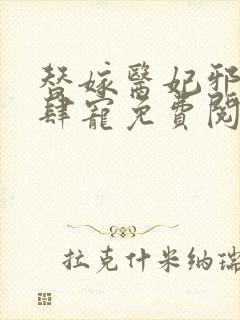 替嫁醫妃邪
肆寵免費閱
拉克什米納瑞